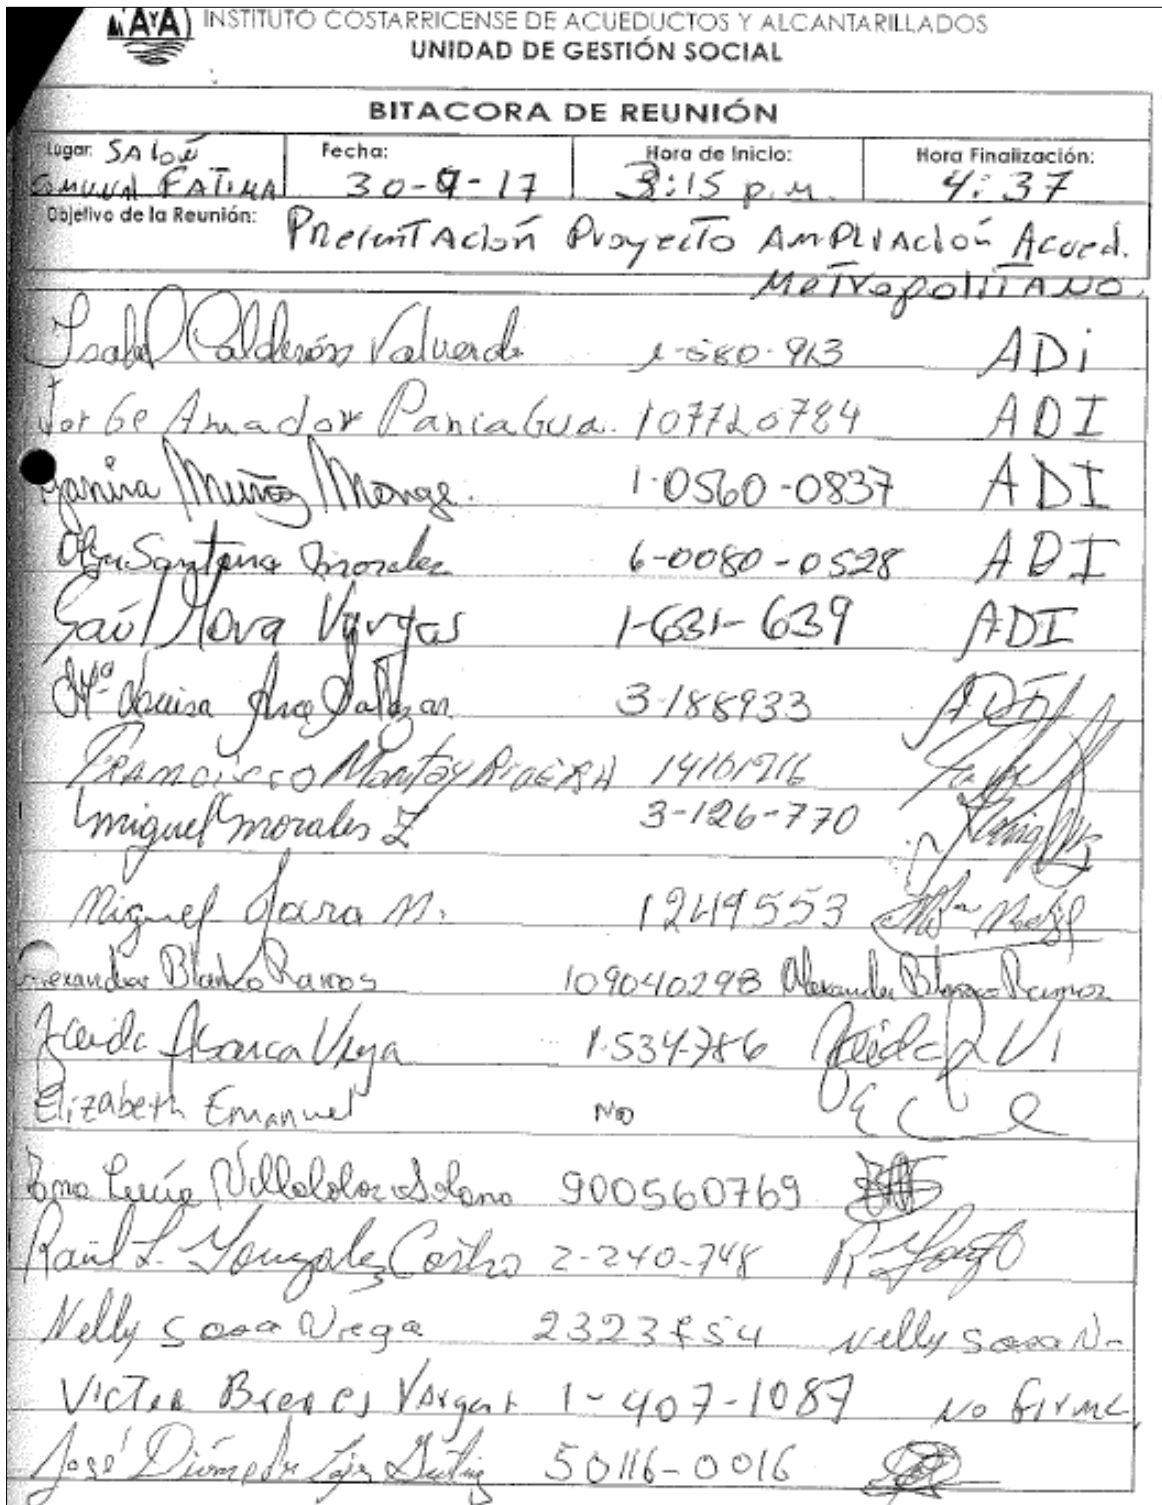 AyA INSTITUTO COSTARRICENSE DE ACUEDUCTOS Y ALCANTARILLADOS
UNIDAD DE GESTIÓN SOCIAL
BITACORA DE REUNIÓN
Lugar: SALÓN Fecha: Hora de Inicio: Hora Finalización:
COMUNAL FATIMA 30-9-17 3:15 p.m. 4:37
Objetivo de la Reunión: Presentación Proyecto Ampliación Acued.
Metropolitano.
Isabel Calderón Valverde 1-580-913 ADi
Jorge Amador Paniagua. 107720784 ADI
Yanira Muñoz Monge. 1-0560-0837 ADI
Olga Santana Morales 6-0080-0528 ADI
Saúl Mora Vargas 1-631-639 ADI
Mª Luisa Salazar 3-188933 ADI
FRANCISCO
miguel morales Z 3-126-770
Miguel Jara M. 12449553
Alexander Blanco Ramos 109040298 Alexander Blanco Ramos
Zeida Abarca 1-534-786 Zeida
Elizabeth Emanuel No
Lucía Villalobos Solano 900560769
Raúl L. González Castro 2-240-748
Nelly Sosa Vega 2323854 Nelly Sosa
Victor Brenes Vargas 1-407-1087 No firma
José Diómedes 50116-0016